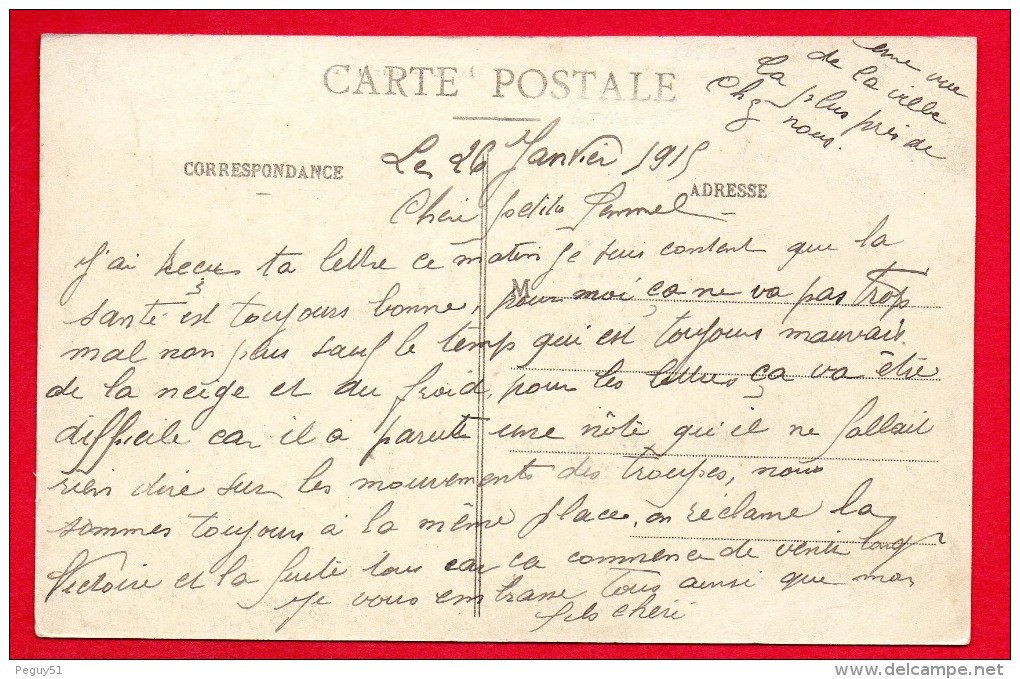 CARTE POSTALE
une vue
de la ville
la plus près de
chez nous.
CORRESPONDANCE
ADRESSE
Le 26 Janvier 1915
Cheri petite femme
J'ai reçus ta lettre ce matin je suis content que la
M
santé est toujours bonne, pour moi ça ne va pas trop
mal non plus sauf le temp qui est toujours mauvais.
de la neige et du froid, pour les lettres ça va être
difficile car il a parute une nôte qu'il ne fallait
rien dire sur les mouvements des troupes, nous
sommes toujours à la même place, on réclame la
Victoire et la suite tous car ça commence de venir long
je vous embrasse tous ainsi que mon
fils chéri
Peguy51
delcampe.net